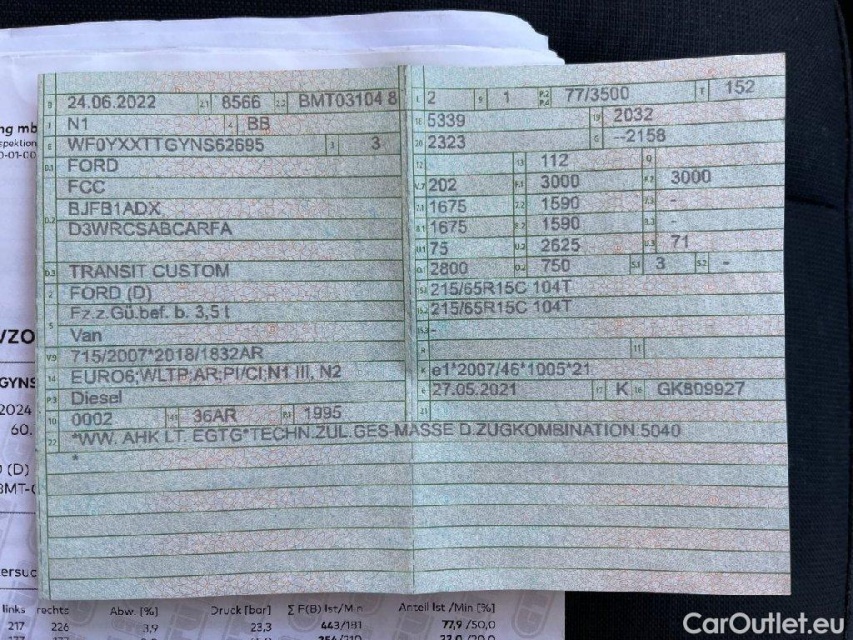 B 24.06.2022 2.1 8566 2.2 BMT03104 8
J N1 4 BB
E WF0YXXTTGYNS62695 3 3
D.1 FORD
FCC
D.2 BJFB1ADX
D3WRCSABCARFA
D.3 TRANSIT CUSTOM
2 FORD (D)
5 Fz.z.Gü.bef. b. 3,5 t
Van
V.9 715/2007*2018/1832AR
14 EURO6;WLTP;AR;PI/CI;N1 III, N2
P.3 Diesel
10 0002 14.1 36AR P.1 1995
22 *WW. AHK LT. EGTG*TECHN.ZUL.GES-MASSE D.ZUGKOMBINATION 5040
*
L 2 9 1 P.2 P.4 77/3500 T 152
18 5339 19 2032
20 2323 G --2158
12 13 112 Q
V.7 202 F.1 3000 F.2 3000
7.1 1675 7.2 1590 7.3 -
8.1 1675 8.2 1590 8.3 -
U.1 75 U.2 2625 U.3 71
O.1 2800 O.2 750 S.1 3 S.2 -
15.1 215/65R15C 104T
15.2 215/65R15C 104T
15.3 -
R 11
K e1*2007/46*1005*21
6 27.05.2021 17 K 16 GK809927
21
ng mb
0-01-00
VZO
GYNS
2024
60.
(D)
BMT-
ersuc
links rechts Abw. [%] Druck [bar] ΣF(B) Ist/Min Anteil Ist /Min [%]
217 226 3,9 23,3 443/181 77,9 /50,0
CarOutlet.eu